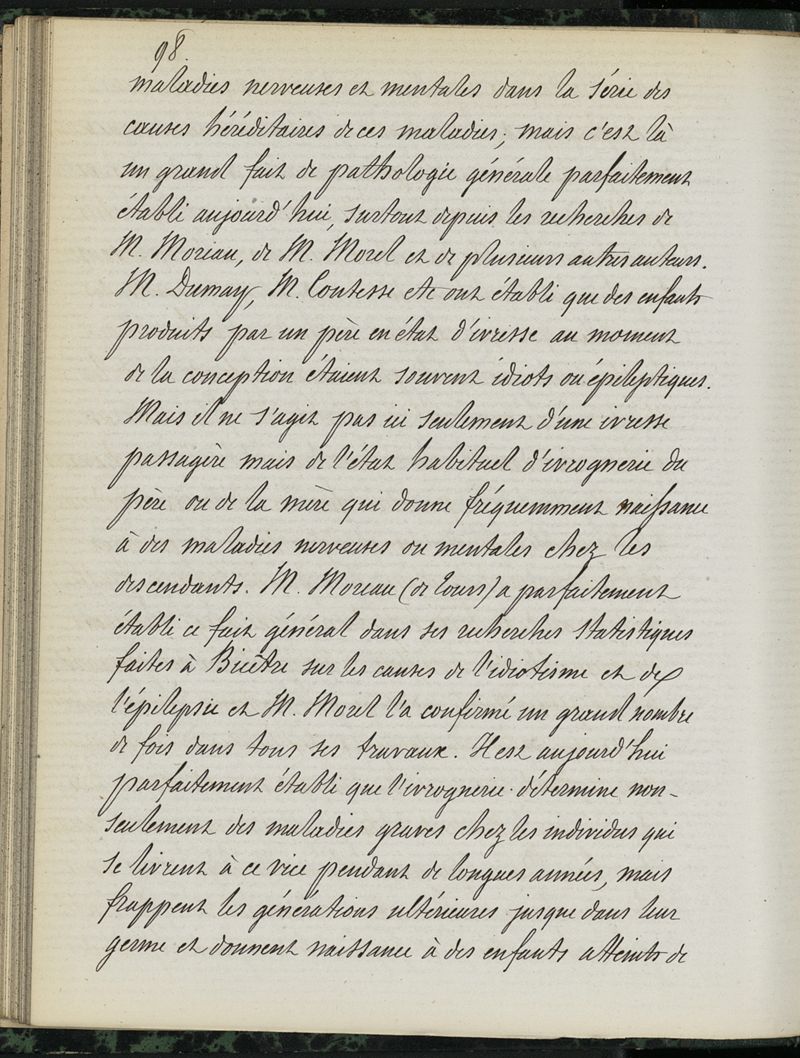 98.
maladies nerveuses et mentales dans la série des
causes héréditaires de ces maladies; mais c'est là
un grand fait de pathologie générale parfaitement
établi aujourd'hui, surtout depuis les recherches de
M. Moreau, de M. Morel et de plusieurs autres auteurs.
M. Dumay, M. Contesse etc ont établi que des enfants
produits par un père en état d'ivresse au moment
de la conception étaient souvent idiots ou épileptiques.
Mais il ne s'agit pas ici seulement d'une ivresse
passagère mais de l'état habituel d'ivrognerie du
père ou de la mère qui donne fréquemment naissance
à des maladies nerveuses ou mentales chez les
descendants. M. Moreau (de Tours) a parfaitement
établi ce fait général dans ses recherches statistiques
faites à Bicêtre sur les causes de l'idiotisme et de
l'épilepsie et M. Morel l'a confirmé un grand nombre
de fois dans tous ses travaux. Il est aujourd'hui
parfaitement établi que l'ivrognerie détermine non-
seulement des maladies graves chez les individus qui
se livrent à ce vice pendant de longues années, mais
frappent les générations ultérieures jusque dans leur
germe et donnent naissance à des enfants atteints de